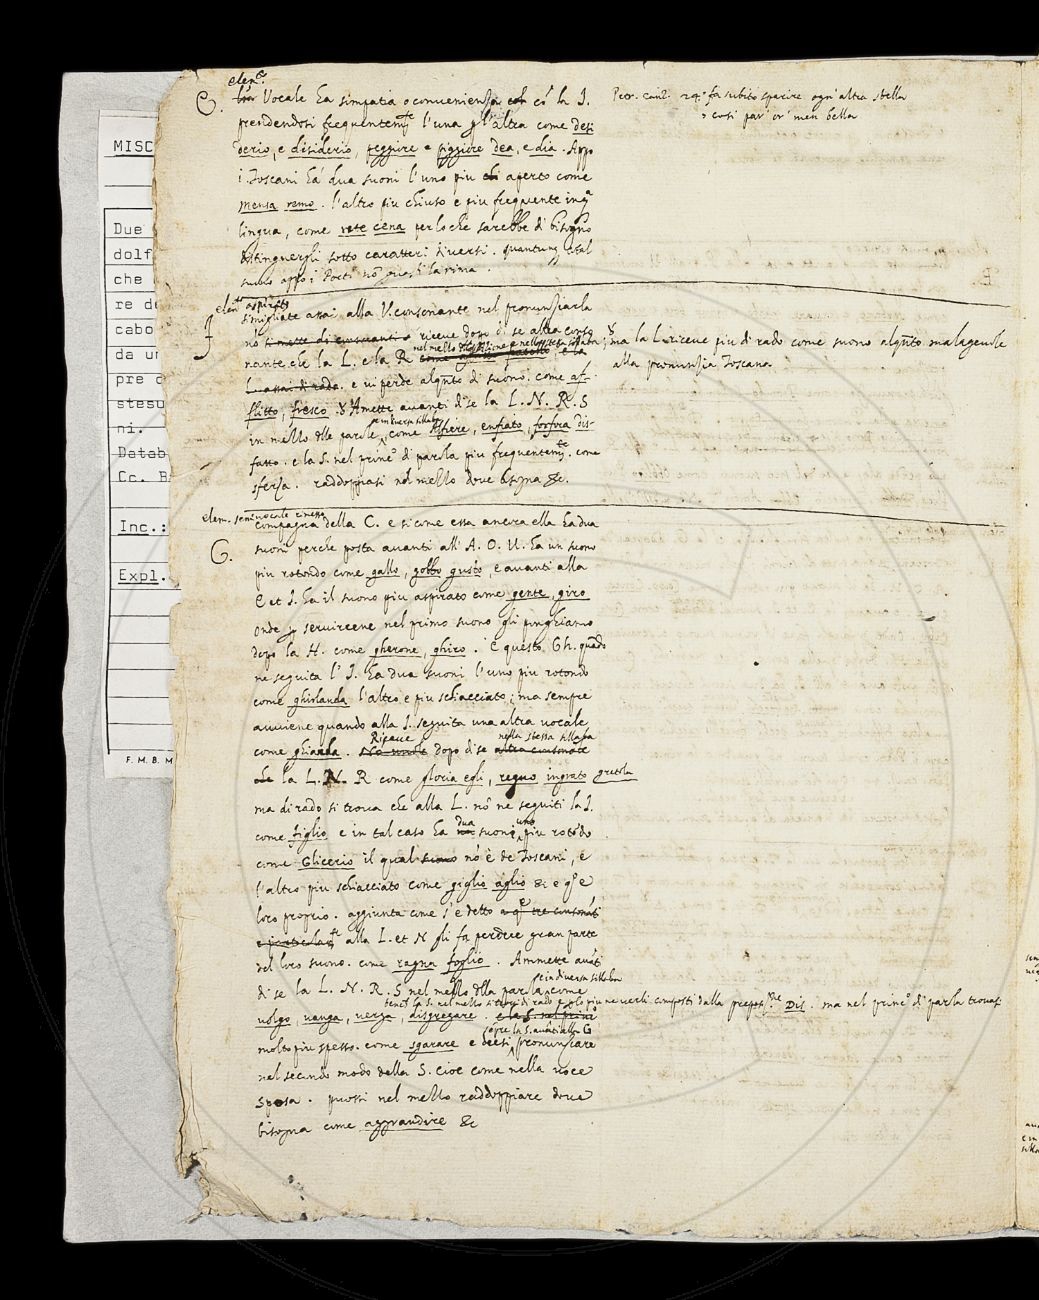 MISC
Due
dolf
che
re de
cabo
da un
pre d
stesu
ni.
Datab
Cc. B
Inc.:
Expl.
F. M. B. M
elem.
E. Vocale ha simpatia o conuenienza co la I.
prendendosi frequentemte l'una p l'altra come desi
derio, e disiderio, peggiore e piggiore dea, e dia. Appo
i Toscani ha dua suoni l'uno piu aperto come
mensa remo. l'altro piu chiuso e piu frequente in qa
lingua, come rete cena perloche sarebbe di bisogno
distinguergli sotto caratteri diuersi. quantunq
appo i Poeti no la rima.
Petr. canz. 24. fa subito sparire ogn'altra stella
cosi par or men bella
elem. aspirato
F simigliate assai alla V. consonante nel pronunziarla
no riceue dopo di se altra conso
nel mezzo della dizione e nella stessa sillaba
nante, che la L. e la R.
L. assai di rado. e ui perde alqnto di suono. come af-
flitto, fresco. Amette auanti di se la L. N. R. S
e in diuersa sillaba
in mezzo delle parole, come enfiato, forfora dis-
fatto. e la S. nel princo di parola piu frequentemte. come
sferza. raddoppiasi nel mezzo doue bisogna &c.
ma la L. riceue piu di rado come suono alqnto malageuole
alla pronunzia Toscana
elem. semiuocale
compagna della C. e si come essa ancora ella ha dua
G. suoni perche posta auanti all'A. O. U. ha un suono
piu rotondo come gallo, gobbo gusto, e auanti alla
E et I. ha il suono piu aspirato come gente, giro
onde p seruircene nel primo suono gli pinghiamo
dopo la H. come gherone, ghiro. E questo Gh. quado
ne seguita l'I. ha dua suoni l'uno piu rotondo
come ghirlanda l'altro e piu schiacciato; ma sempre
auuiene quando alla I. seguita una altra uocale
Riceue nella stessa sillaba
come ghianda. dopo di se altra consonate
che la L. N. R come gloria egli, regno ingrato gretola
ma di rado si troua che alla L. no ne seguiti la I.
dua uno
come figlio e in tal caso ha suoni, piu rotodo
come Glicerio il qual suono no è de Toscani, e
l'altro piu schiacciato come giglio aglio &c e qo e
loro proprio. aggiunta come s'e detto
alla L. et N gli fa perdere gran parte
del loro suono. come ragna foglio. Ammette auati
e in diuersa sillaba
di se la L. N. R. S nel mezzo dlla parola come
la S. nel mezzo di rado e solo piu ne uerbi composti dalla preposizne DIS. ma nel princo di parola trouasi
uolgo, uanga, uerga, disgregare. e la S. nel princo
la S. auati alla G
molto piu spesso. come sgarare e deesi pronunziare
nel secondo modo della S. cioe come nella uoce
sposa. puossi nel mezzo raddoppiare doue
bisogna come aggrandire &c